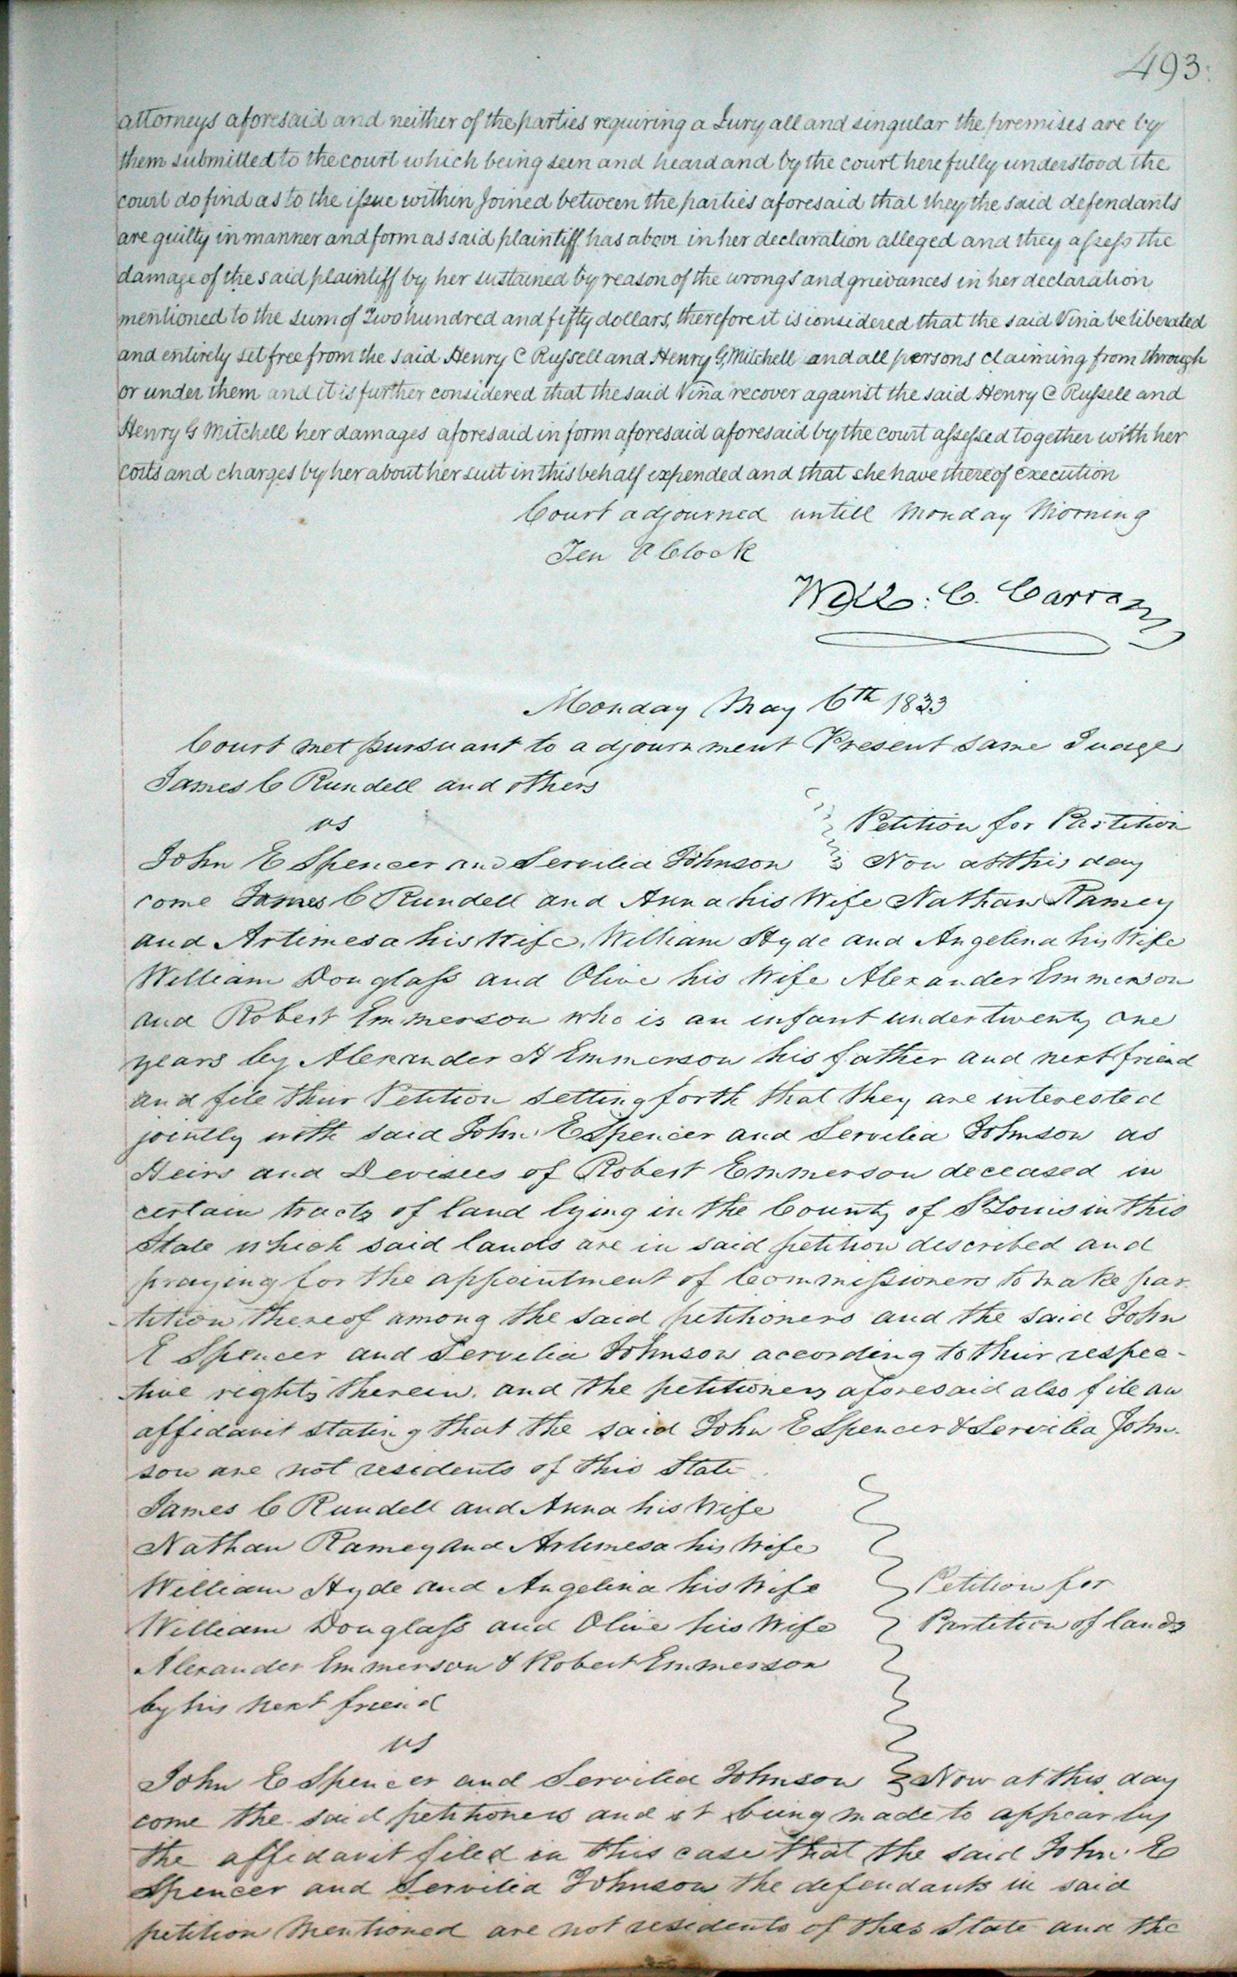 493.
attorneys aforesaid and neither of the parties requiring a Jury all and singular the premises are by
them submitted to the court which being seen and heard and by the court here fully understood the
court do find as to the issue within Joined between the parties aforesaid that they the said defendants
are guilty in manner and form as said plaintiff has above in her declaration alleged and they assess the
damage of the said plaintiff by her sustained by reason of the wrongs and grievances in her declaration
mentioned to the sum of Two hundred and fifty dollars, therefore it is considered that the said Vina be liberated
and entirely set free from the said Henry C Russell and Henry G, Mitchell and all persons claiming from through
or under them and it is further considered that the said Vina recover against the said Henry C Russell and
Henry G Mitchell her damages aforesaid in form aforesaid aforesaid by the court assessed together with her
costs and charges by her about her suit in this behalf expended and that she have thereof execution
Court adjourned untill Monday Morning
Ten O Clock
Will: C. Carr
Monday May 6th 1833
Court met pursuant to adjournment Present same Judge
James C Rundell and others
vs
Petition for Partition
John E Spencer and Servilia Johnson Now at this day
come James C Rundell and Anna his Wife Nathan Ramey
and Artimesa his Wife, William Hyde and Angelina his Wife
William Douglass and Olive his Wife Alexander Emmerson
and Robert Emmerson who is an infant under twenty one
years by Alexander H Emmerson his father and next friend
and file their Petition setting forth that they are interested
jointly with said John E Spencer and Servilia Johnson as
Heirs and Devisees of Robert Emmerson deceased in
certain tracts of land lying in the County of St Louis in this
State which said lands are in said petition described and
praying for the appointment of Commissioners to make par
tition thereof among the said petitioners and the said John
E Spencer and Servilia Johnson according to their respec-
tive rights therein. and the petitioners aforesaid also file an
affidavit stating that the said John E Spencer & Servilia John-
son are not residents of this State
James C Rundell and Anna his Wife
Nathan Ramey and Artimesa his Wife
William Hyde and Angelina his Wife
Petition for
William Douglass and Olive his Wife
Partition of lands
Alexander Emmerson & Robert Emmerson
by his next friend
vs
John E Spencer and Servilia Johnson Now at this day
come the said petitioners and it being made to appear by
the affidavit filed in this case that the said John E
Spencer and Servilia Johnson the defendants in said
petition mentioned are not residents of this State and the